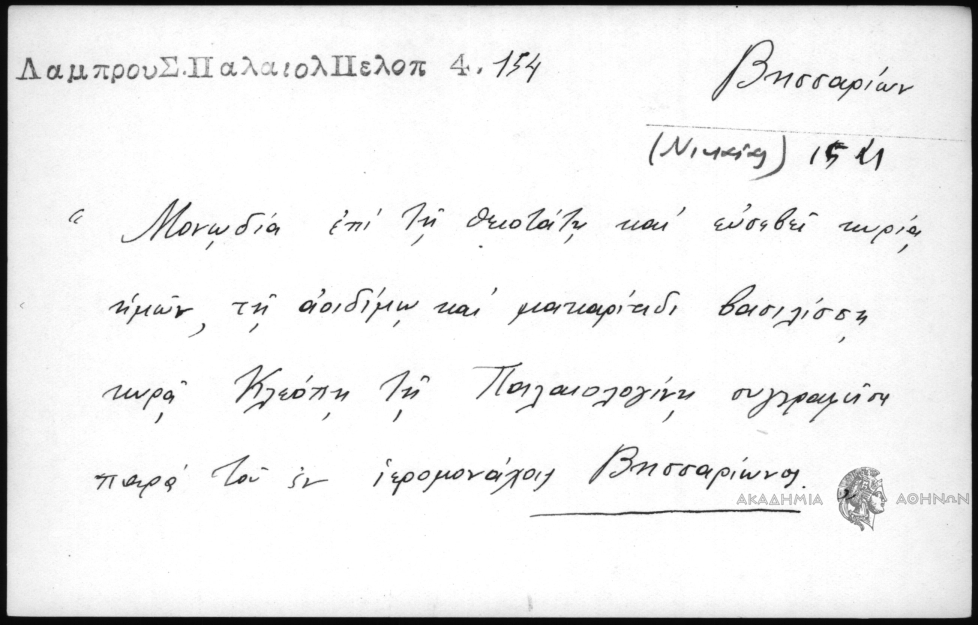 ΛαμπρουΣ.ΠαλαιολΠελοπ 4. 154
Βησσαρίων
(Νικαίας)
" Μονῳδία ἐπί τῇ θειοτάτῃ καί εὐσεβεῖ κυρίᾳ
ἡμῶν, τῇ ἀοιδίμῳ καί μακαρίτιδι βασιλίσσῃ
κυρᾷ Κλεόπῃ τῇ Παλαιολογίνῃ συγγραφεῖσα
παρά τοῦ ἐν ἱερομονάχοις Βησσαρίωνος. "
ΑΚΑΔΗΜΙΑ ΑΘΗΝΩΝ